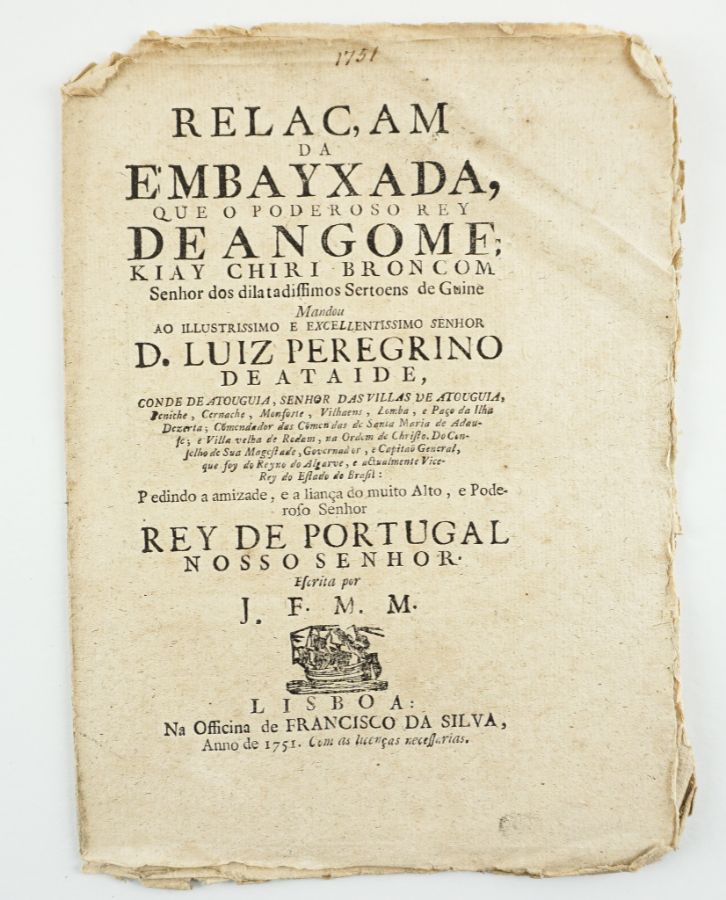 1751
RELAC,AM
DA
EMBAYXADA,
QUE O PODEROSO REY
DE ANGOME;
KIAY CHIRI BRONCOM
Senhor dos dilatadiſſimos Sertoens de Guine
Mandou
AO ILLUSTRISSIMO E EXCELLENTISSIMO SENHOR
D. LUIZ PEREGRINO
DE ATAIDE,
CONDE DE ATOUGUIA, SENHOR DAS VILLAS DE ATOUGUIA,
Peniche, Cernache, Monforte, Vilhaens, Lomba, e Paço da Ilha
Dezerta; Cõmendador das Cõmendas de Santa Maria de Adau-
fe; e Villa velha de Rodam, na Ordem de Chriſto. Do Con-
ſelho de Sua Mageſtade, Governador, e Capitaõ General,
que foy do Reyno do Algarve, e actualmente Vice-
Rey do Eſtado do Braſil:
Pedindo a amizade, e a liança do muito Alto, e Pode-
roſo Senhor
REY DE PORTUGAL
NOSSO SENHOR.
Eſcrita por
J. F. M. M.
LISBOA:
Na Officina de FRANCISCO DA SILVA,
Anno de 1751. Com as licenças neceſſarias.